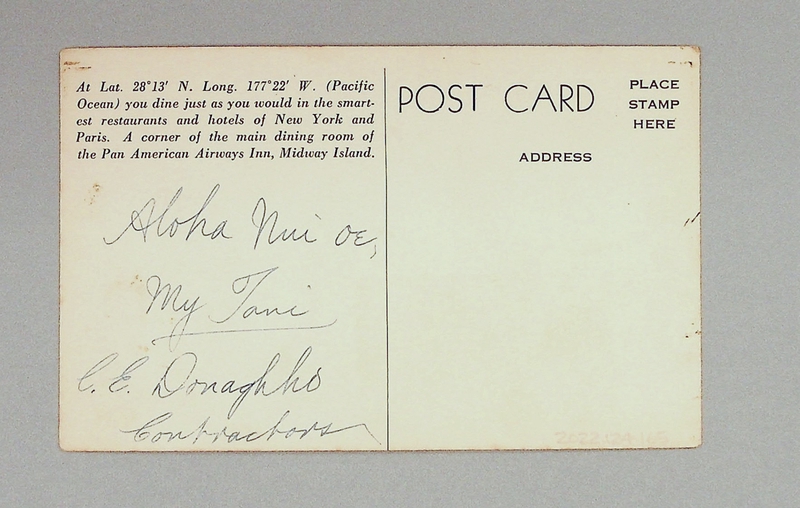 At Lat. 28°13' N. Long. 177°22' W. (Pacific
Ocean) you dine just as you would in the smart-
est restaurants and hotels of New York and
Paris. A corner of the main dining room of
the Pan American Airways Inn, Midway Island.
POST CARD
PLACE
STAMP
HERE
ADDRESS
Aloha Nui oe,
My Tani
C. E. Donaghho
Contractors